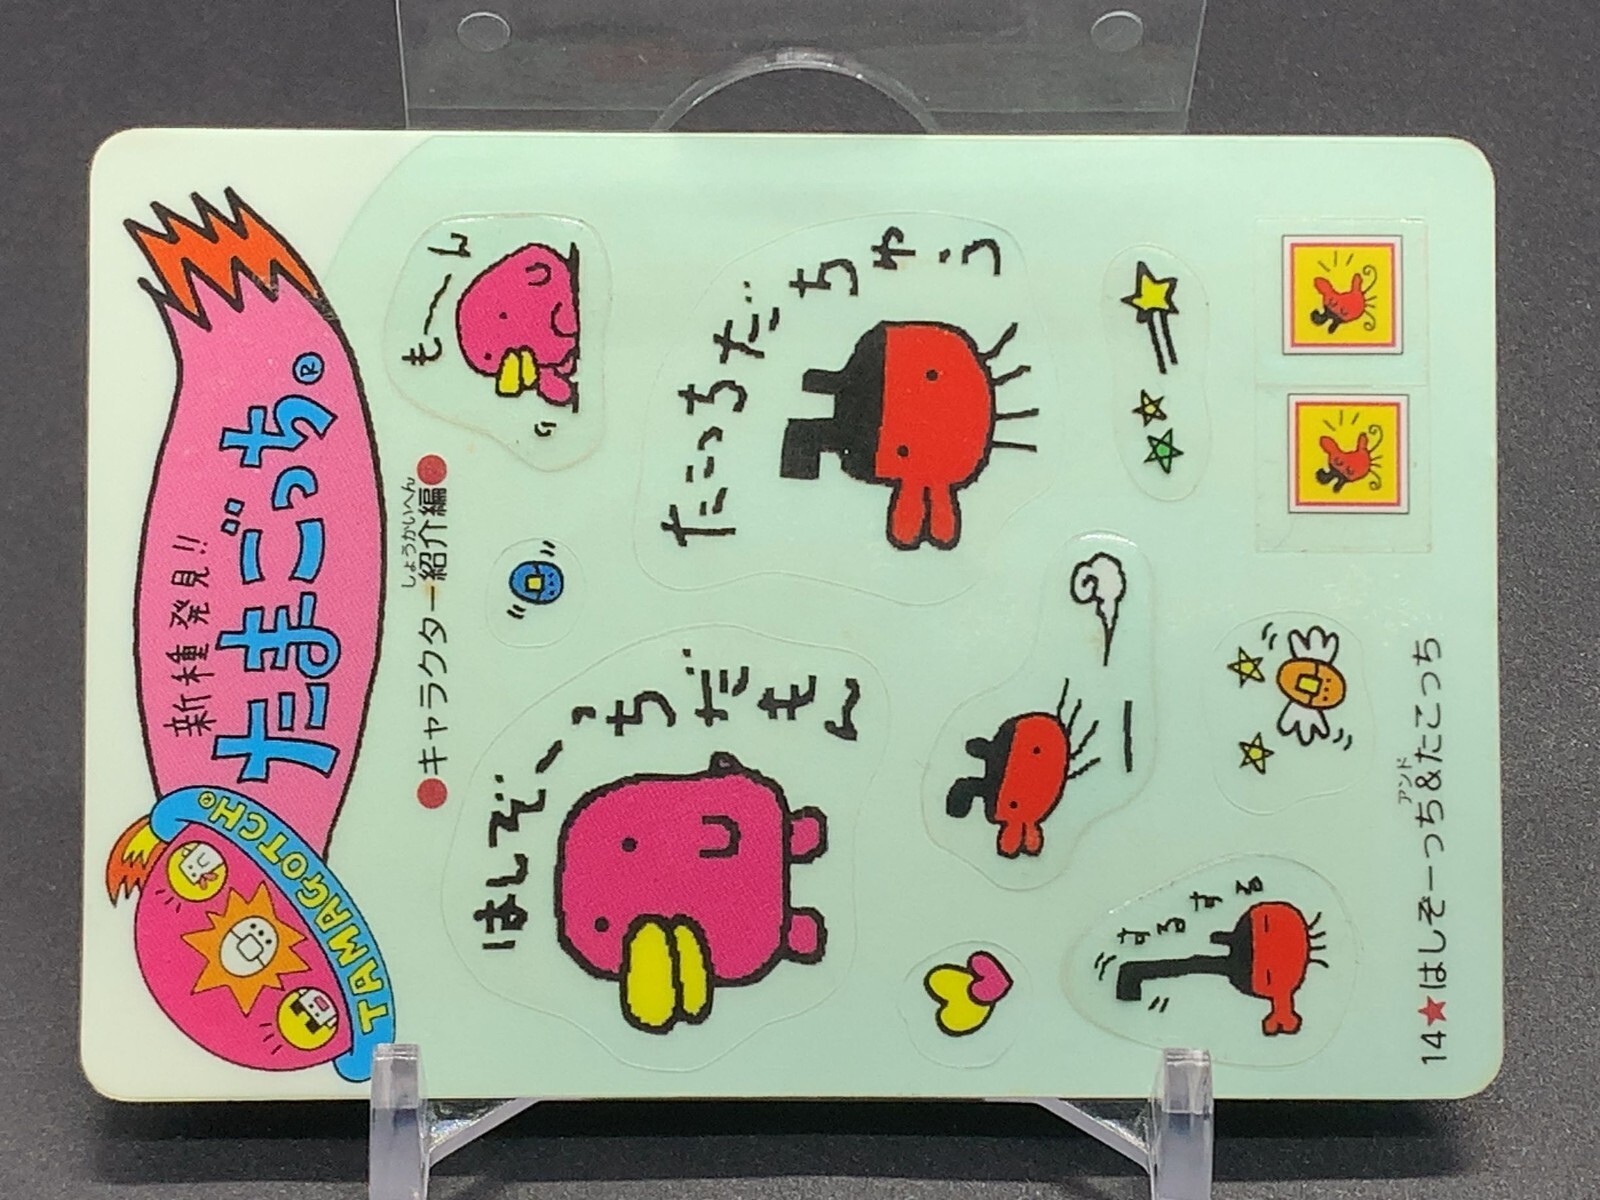 TAMAGOTCH®
新種発見!!
たまごっち®
●キャラクター紹介編●
しょうかいへん
も〜〜ん
たこっちだちゅう
はしぞ〜っちだもん
するする
14★はしぞーっち&たこっち
アンド